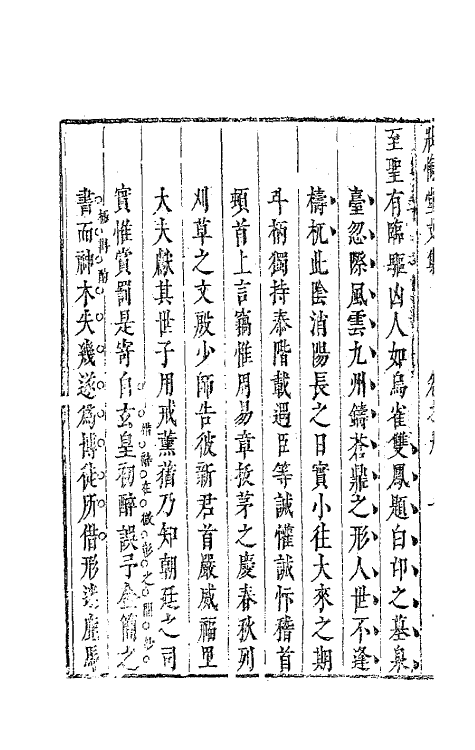 壯悔堂文集
至聖有臨驅凶人如鳥雀雙鳳題白印之墓泉
臺忽際風雲九州鑄蒼鼎之形人世不逢
檮杌此陰消陽長之日實小往大來之期
斗柄獨持泰階載遇臣等誠懽誠忭稽首
頓首上言竊惟周易章拔茅之慶春秋列
刈草之文殷少師告彼新君首嚴威福里
大夫獻其世子用戒薰蕕乃知朝廷之司
實惟賞罰是寄自玄皇初醉誤予金簡之
措辭在微彰之間妙
書而神木失幾遂爲博徒所借形
極斟酌